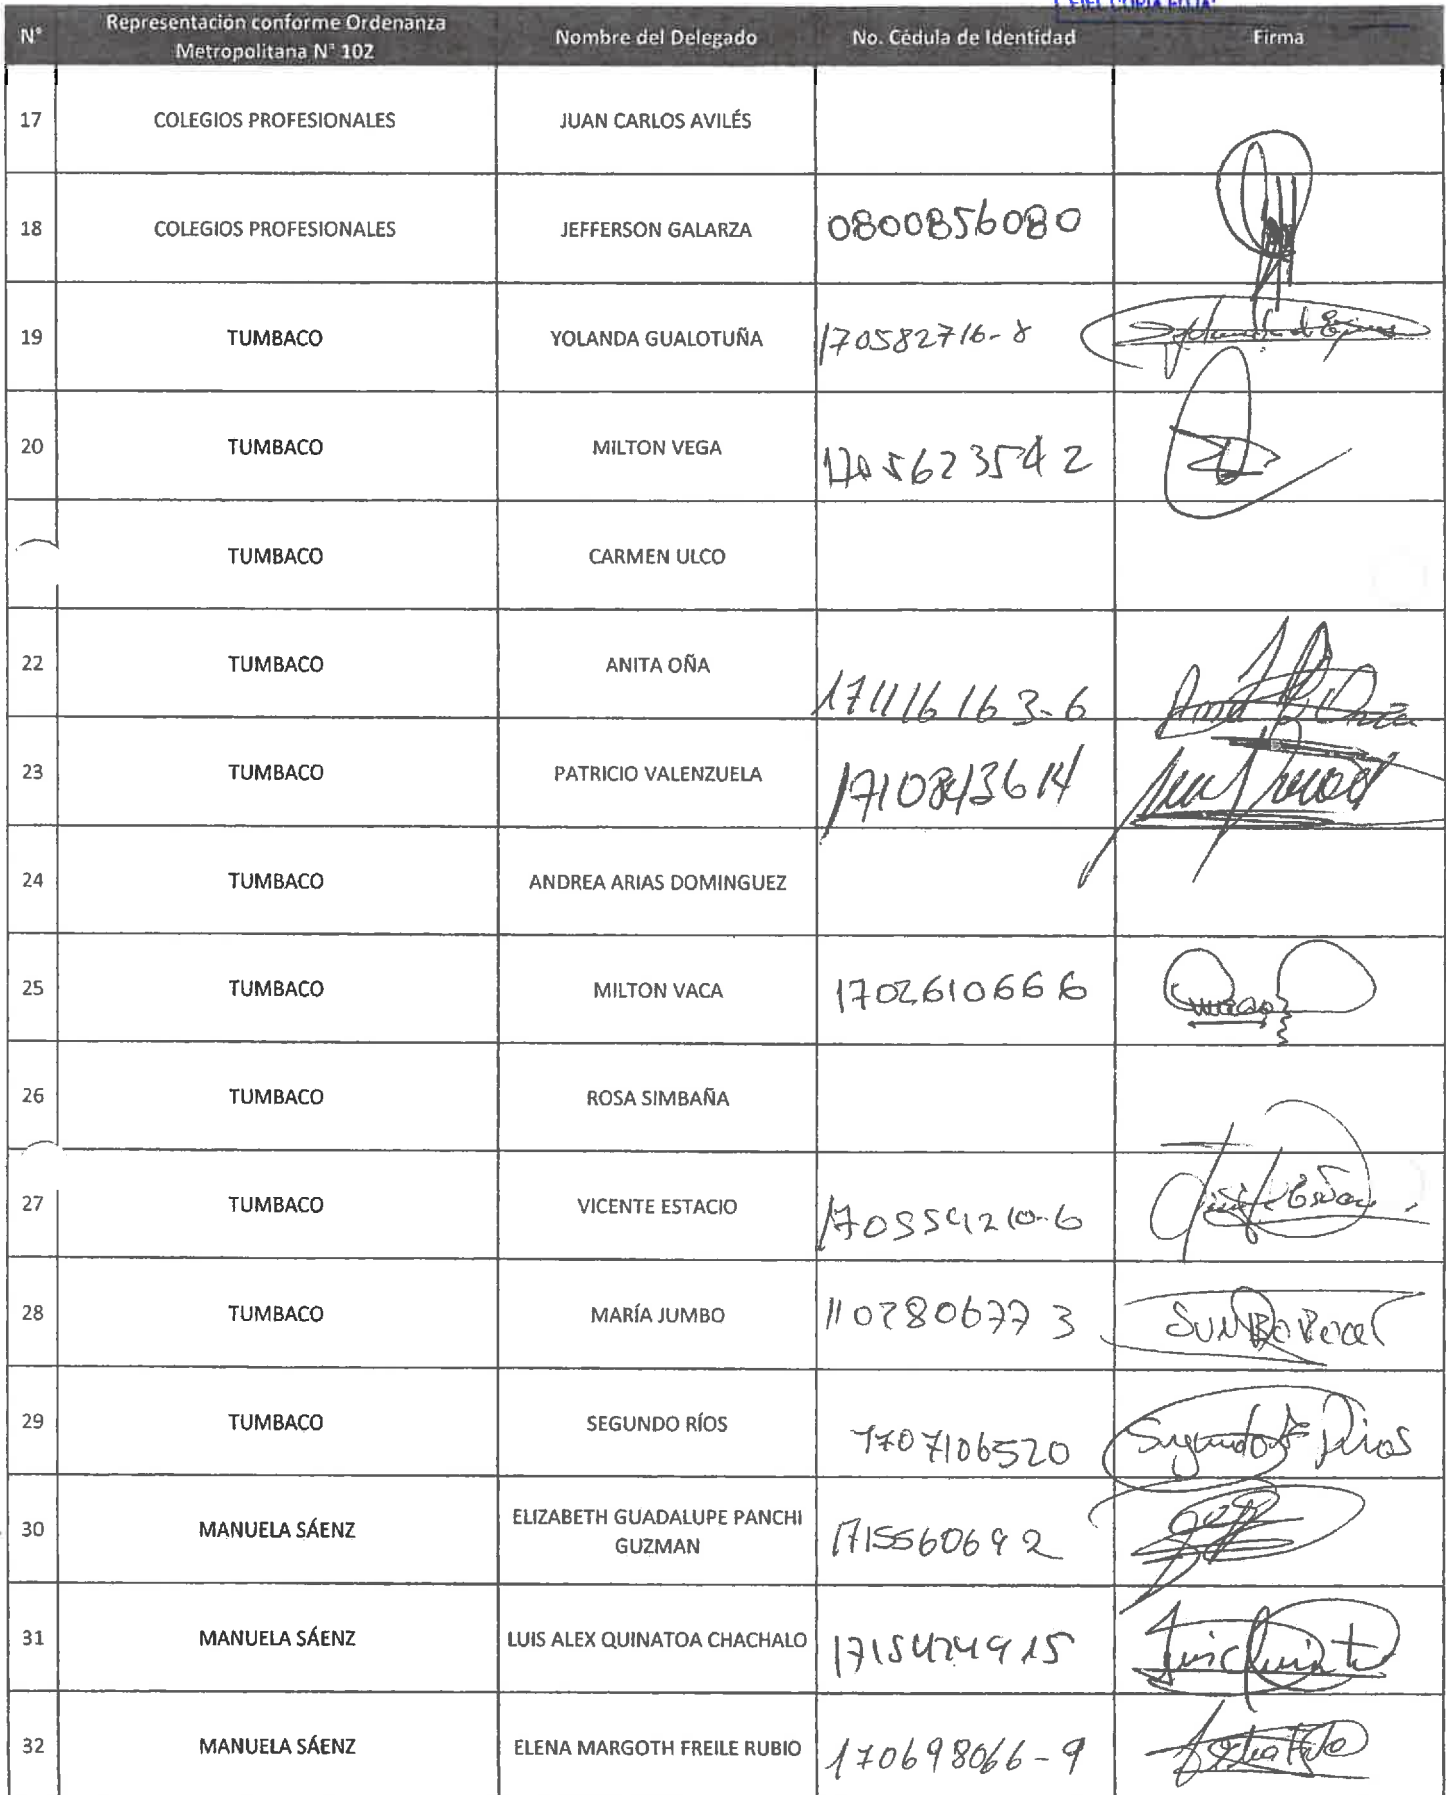 N° Representación conforme Ordenanza Metropolitana N° 102 Nombre del Delegado No. Cédula de Identidad Firma
17 COLEGIOS PROFESIONALES JUAN CARLOS AVILÉS
18 COLEGIOS PROFESIONALES JEFFERSON GALARZA 0800856080
19 TUMBACO YOLANDA GUALOTUÑA 170582716-8
20 TUMBACO MILTON VEGA 1705623542
TUMBACO CARMEN ULCO
22 TUMBACO ANITA OÑA 171116163-6
23 TUMBACO PATRICIO VALENZUELA 1710843614
24 TUMBACO ANDREA ARIAS DOMINGUEZ
25 TUMBACO MILTON VACA 1702610666
26 TUMBACO ROSA SIMBAÑA
27 TUMBACO VICENTE ESTACIO 170554210-6
28 TUMBACO MARÍA JUMBO 1102806773
29 TUMBACO SEGUNDO RÍOS 1707106520 Segundo F Rios
30 MANUELA SÁENZ ELIZABETH GUADALUPE PANCHI GUZMAN 1715560692
31 MANUELA SÁENZ LUIS ALEX QUINATOA CHACHALO 1715424915
32 MANUELA SÁENZ ELENA MARGOTH FREILE RUBIO 170698066-9